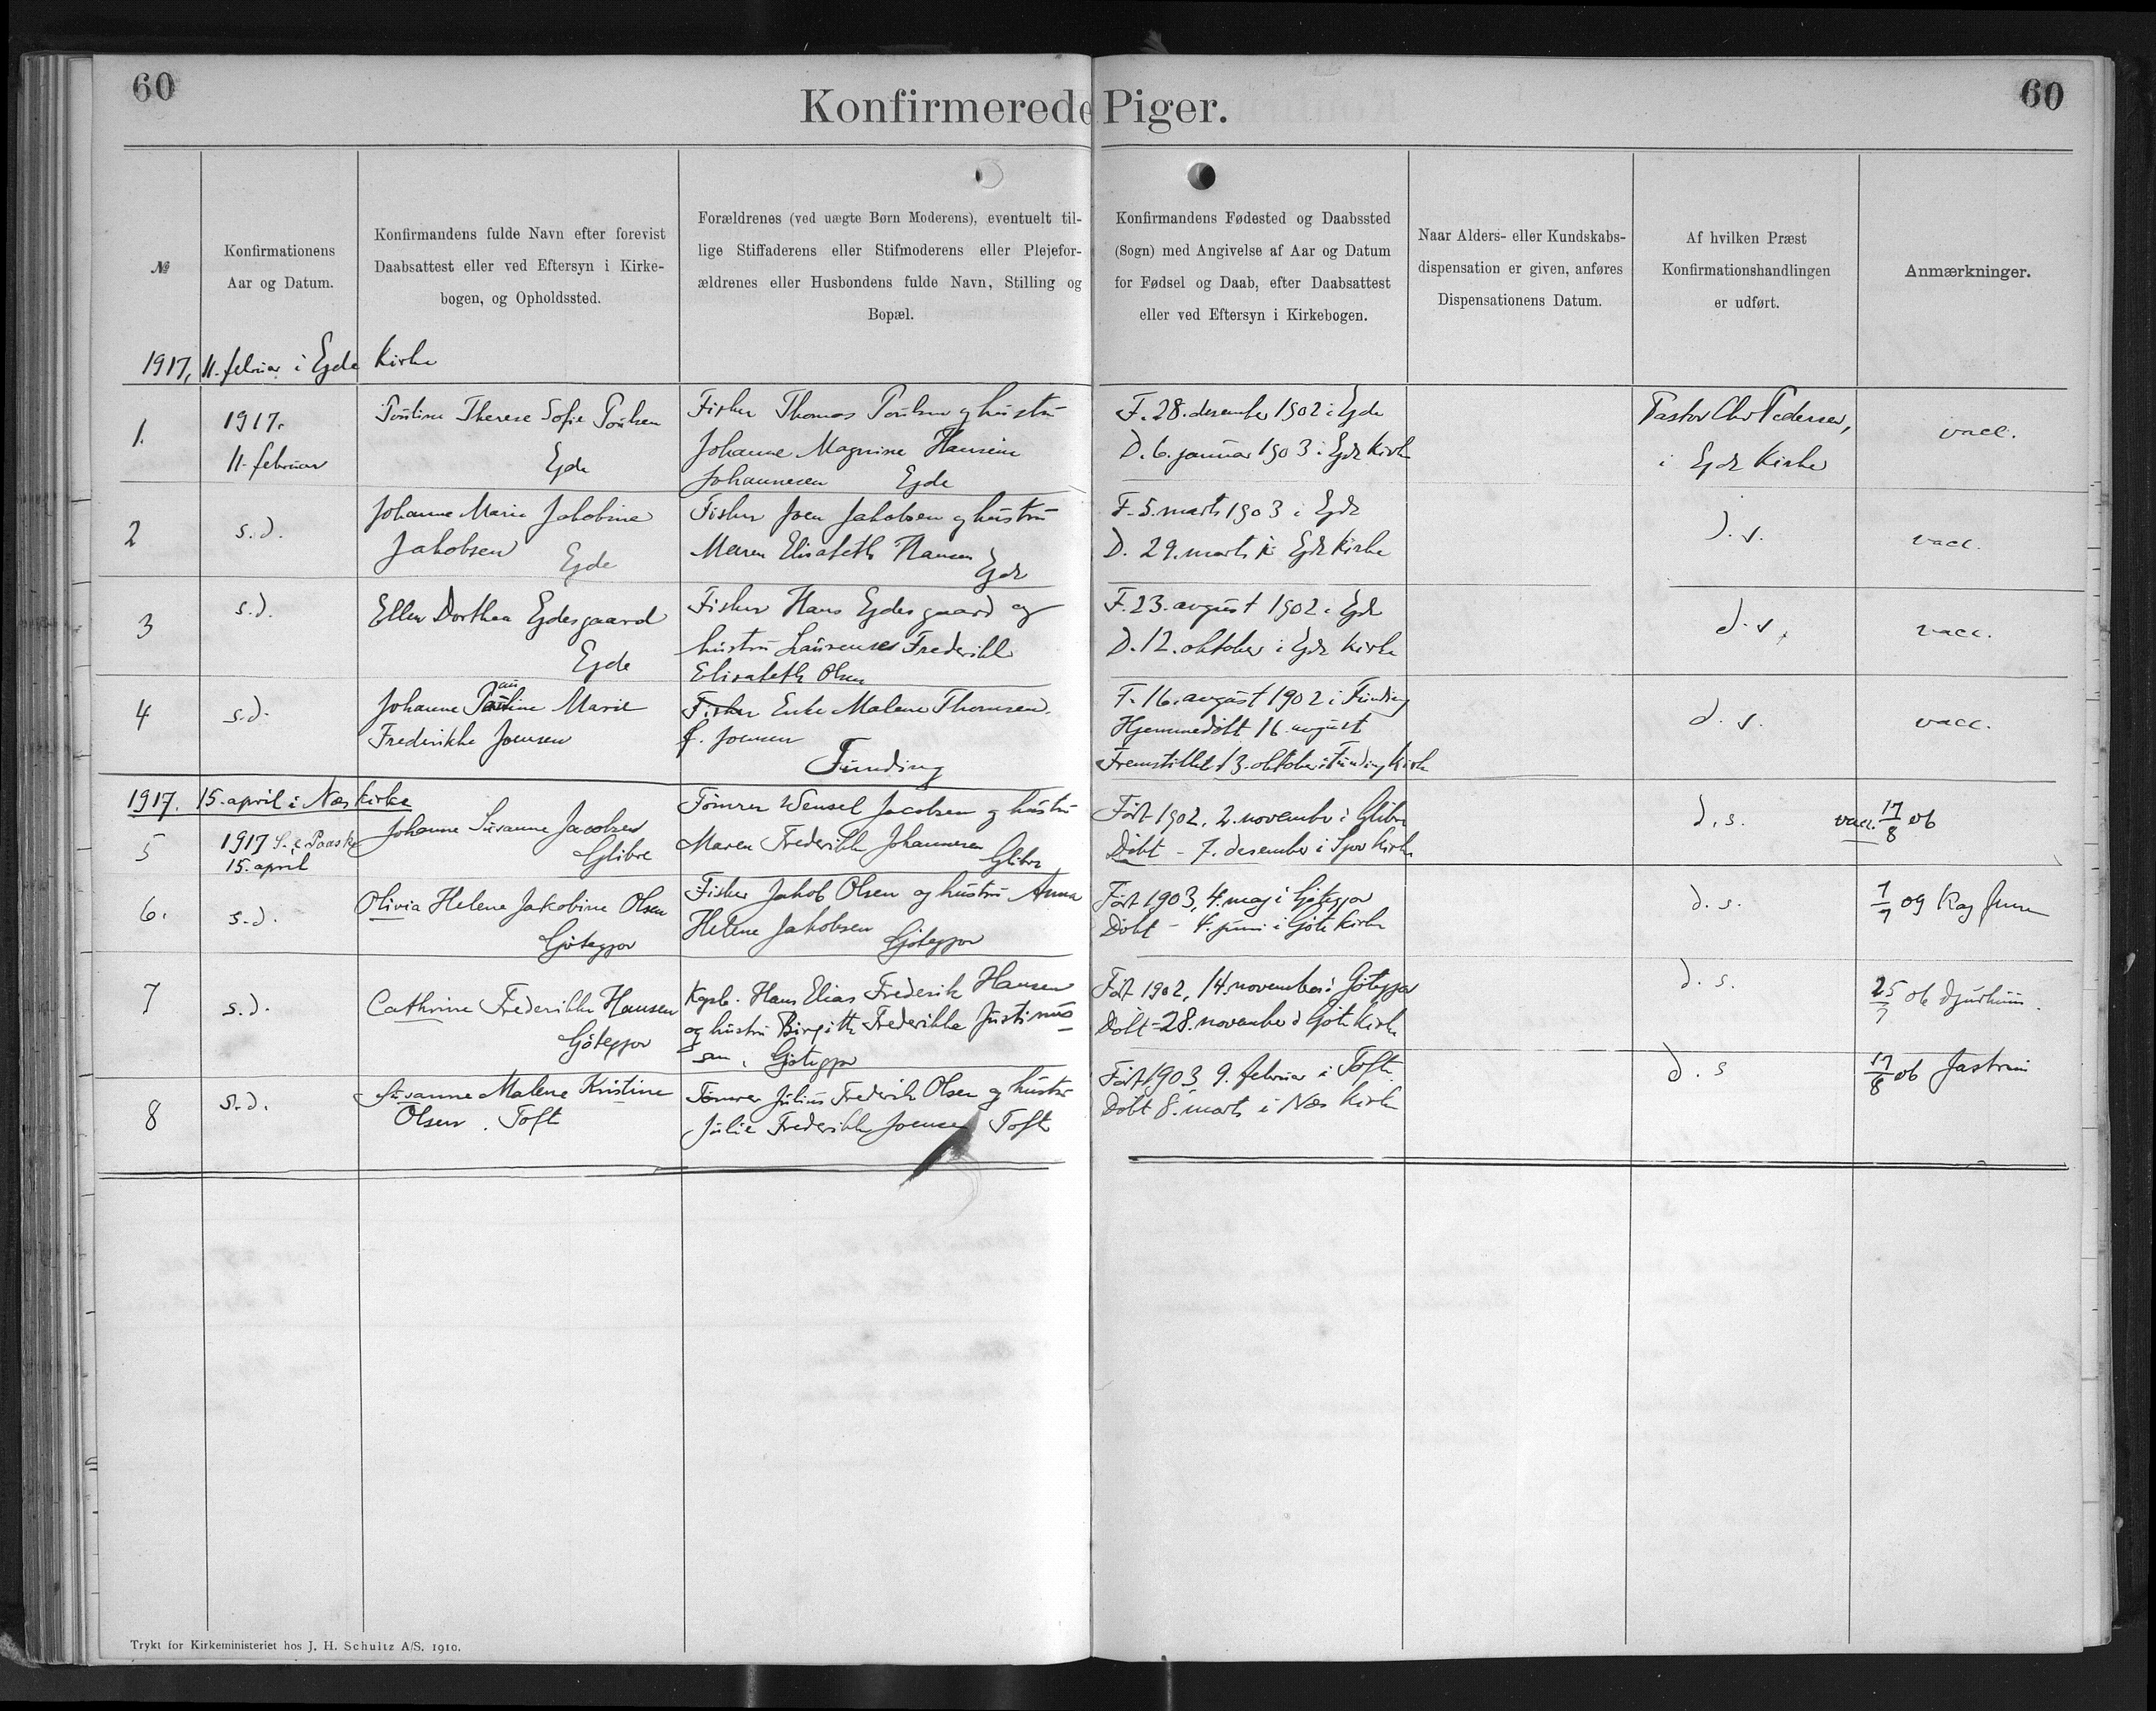 60
60
Konfirmerede Piger.
№
Konfirmationens
Aar og Datum.
Konfirmandens fulde Navn efter forevist
Daabsattest eller ved Eftersyn i Kirke-
bogen, og Opholdssted.
Forældrenes (ved uægte Børn Moderens), eventuelt til-
lige Stiffaderens eller Stifmoderens eller Plejefor-
ældrenes eller Husbondens fulde Navn, Stilling og
Bopæl.
Konfirmandens Fødested og Daabssted
(Sogn) med Angivelse af Aar og Datum
for Fødsel og Daab, efter Daabsattest
eller ved Eftersyn i Kirkebogen.
Naar Alders- eller Kundskabs-
dispensation er given, anføres
Dispensationens Datum.
Af hvilken Præst
Konfirmationshandlingen
er udført.
Anmærkninger.
1917, 11. februar i Ejde Kirke
1.
1917.
11. februar
Poulina Therese Sofie Poulsen
Ejde
Fisker Thomas Poulsen og hustru
Johanne Magnine Hansine
Johannesen Ejde
F. 28. desember 1902 i Ejde
D. 6. januar 1903 i Ejde Kirke
Pastor Chr Pedersen,
i Ejde Kirke
vacc.
2
s.d.
Johanne Marie Jakobine
Jakobsen Ejde
Fisker Joen Jakobsen og hustru
Maren Elisabeth Hansen
Ejde
F. 5. marts 1903 i Ejde
D. 29. marts i Ejde Kirke
d. s.
vacc.
3
s.d.
Ellen Dorthea Ejdesgaard
Ejde
Fisker Hans Ejdesgaard og
hustru Laurense Frederikke
Elisabeth Olsen
F. 23. avgust 1902 i Ejde
D. 12. oktober i Ejde Kirke
d. s.
vacc.
4
s.d.
Johanne Pauline Marie
Frederikke Joensen
Fisker Enke Malene Thomsen.
f. Joensen
Funding
F. 16. avgust 1902 i Funding
Hjemmedøbt 16. avgust
Fremstillet 13. oktober i Funding Kirke
d. s.
vacc.
1917. 15. april i Næs kirke
5
1917 S. e Paaske
15. april
Johanne Susanne Jacobsen
Glibre
Tømrer Wensel Jacobsen og hustru
Maren Frederikke Johannesen
Glibre
Født 1902, 2. november i Glibre
Døbt - 7. desember i Sjov Kirke
d. s.
vacc. 17/8 06
6.
s.d.
Olivia Helene Jakobine Olsen
Gøtegjov
Fisker Jakob Olsen og hustru Anna
Helene Jakobsen Gøtegjov
Født 1903, 4. maj i Gøtegjov
Døbt - 4. juni i Gøte Kirke
d. s.
1/7 09
7
s.d.
Cathrine Frederikke Hansen
Gøtegjov
Kgsb. Hans Elias Frederik Hansen
og hustru Birgitte Frederikke Justinus
sen, Gøtegjov
Født 1902, 14. november i Gøtegjov
Døbt - 28. november i Gøte Kirke
d. s.
25/7 06
8
s.d.
Susanne Malene Kristine
Olsen. Toft
Tømrer Julius Frederik Olsen og hustru
Julie Frederikke Joensen Toft
Født 1903 9. februar i Toft.
Døbt 8. marts i Næs Kirke
d. s
17/8 06
Trykt for Kirkeministeriet hos J. H. Schultz A/S. 1910.